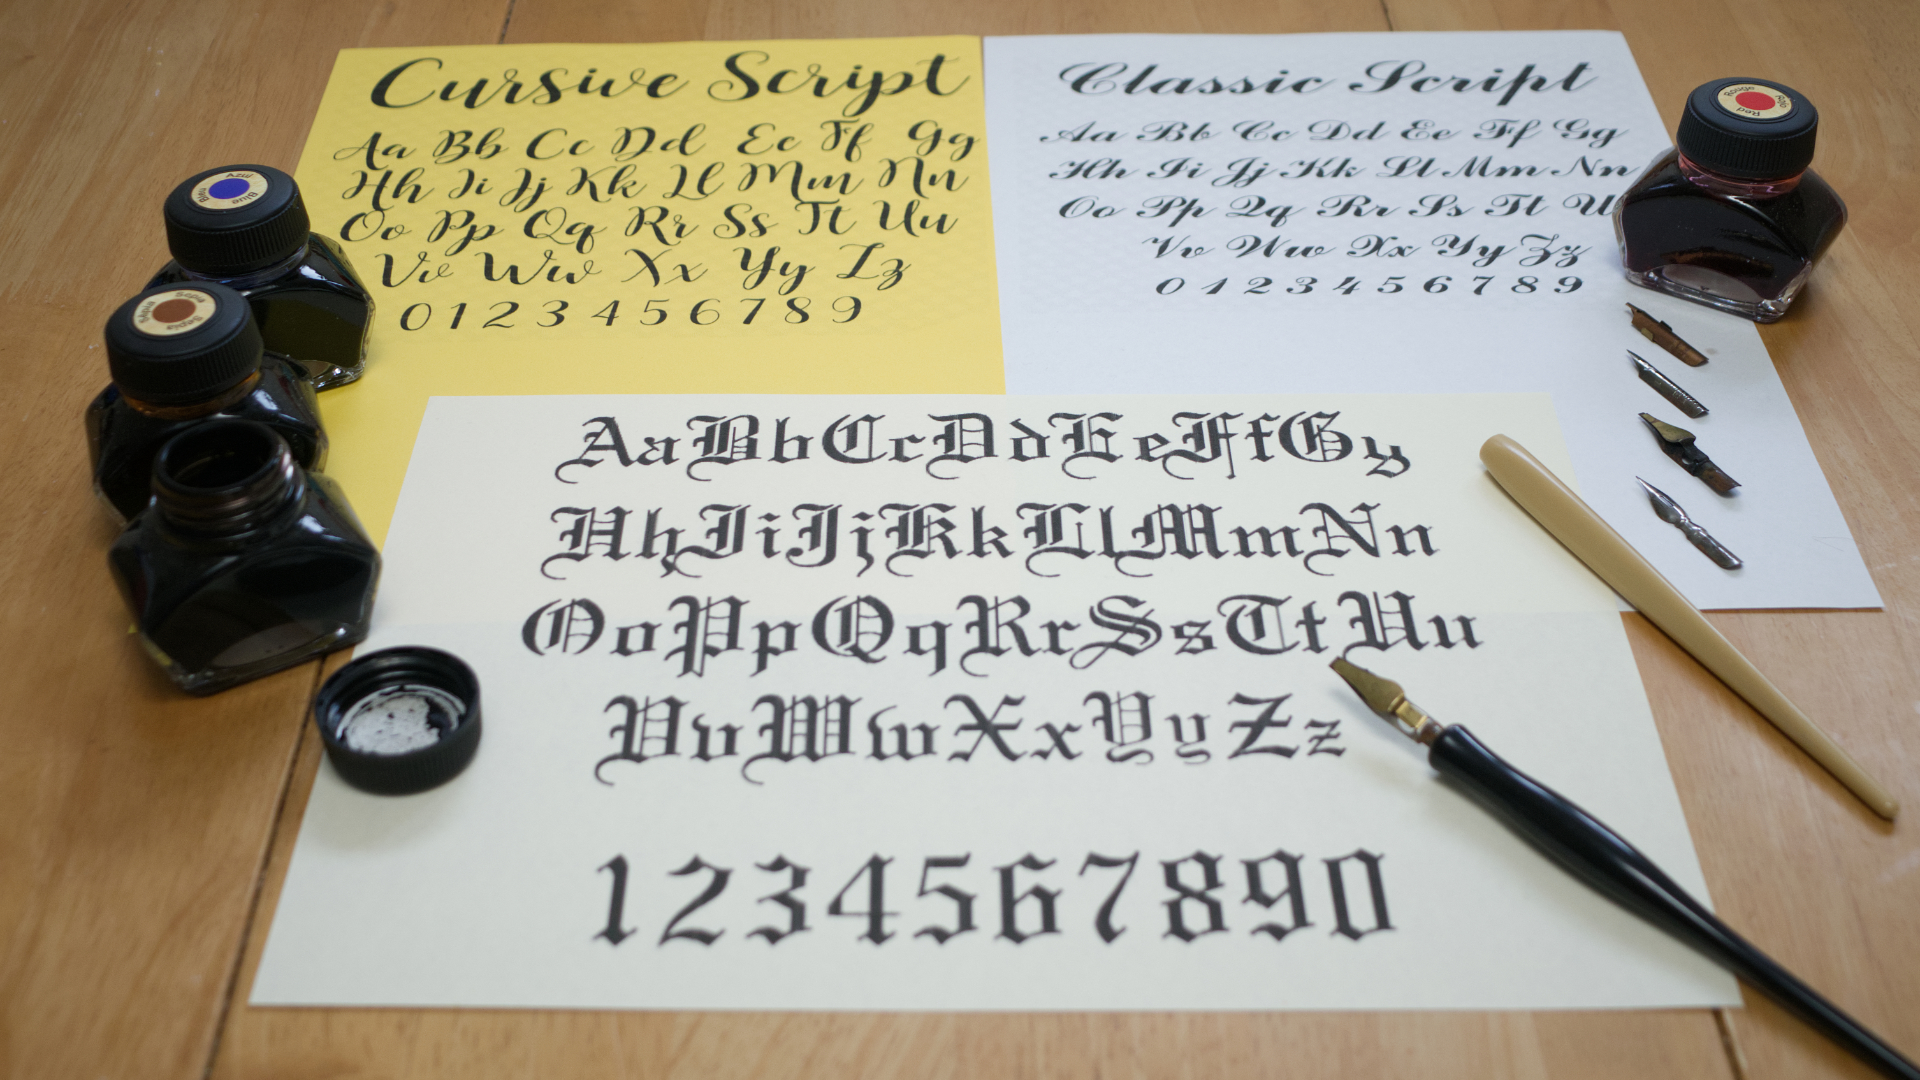 Cursive Script
Aa Bb Cc Dd Ee Ff Gg
Hh Ii Jj Kk Ll Mm Nn
Oo Pp Qq Rr Ss Tt Uu
Vv Ww Xx Yy Zz
0 1 2 3 4 5 6 7 8 9
Classic Script
Aa Bb Cc Dd Ee Ff Gg
Hh Ii Jj Kk Ll Mm Nn
Oo Pp Qq Rr Ss Tt U
Vv Ww Xx Yy Zz
0 1 2 3 4 5 6 7 8 9
Rouge Rojo Red
Azul Blue
Sepia
AaBbCcDdEeFfGy
HhIiJjKkLlMmNn
OoPpQqRrSsTtUu
VvWwXxYyZz
1234567890